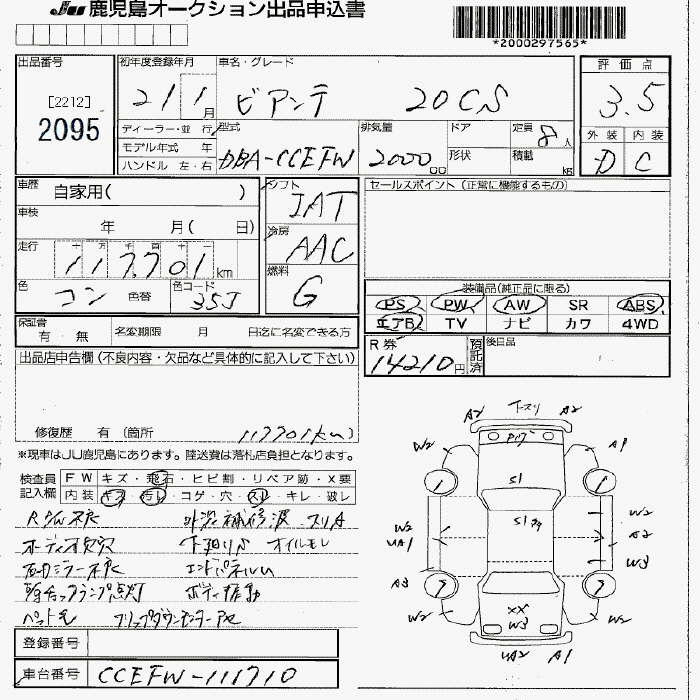 JU 鹿児島オークション出品申込書
*2000297565*
出品番号
[2212]
2095
初年度登録年月
21 1月
車名・グレード
ビアンテ 20CS
評価点
3.5
外装 内装
D C
ディーラー・並行
モデル年式 年
ハンドル 左・右
型式
DBA-CCEFW
排気量
2000cc
ドア
形状
定員 8人
積載 kg
車歴 自家用( )
車検 年 月( 日)
走行 十 万 千 百 十
117,701km
色 コン 色替
色コード 35J
シフト
IAT
冷房
AAC
燃料
G
セールスポイント(正常に機能するもの)
装備品(純正品に限る)
PS PW AW SR ABS
エアB TV ナビ カワ 4WD
保証書
有・無
名変期限 月 日迄に名変できる方
R券
14210円
預託済
後日品
出品店申告欄(不良内容・欠品など具体的に記入して下さい)
修復歴 有(箇所 117701km)
※現車はJU鹿児島にあります。陸送費は落札店負担となります。
検査員記入欄
FW キズ・飛石・ヒビ割・リペア跡・X要
内装 キズ・汚れ・コゲ・穴・スレ・キレ・破レ
外装補修波・スリA
オーディオ欠穴
下廻り オイルモレ
エンドパネルW
ペット毛
登録番号
車台番号 CCEFW-111710
A2 下スリ A2
W2 A1
S1
W2 W2
UA1 A2
W3
A3
W2 XX W2
W3
UA2 A1